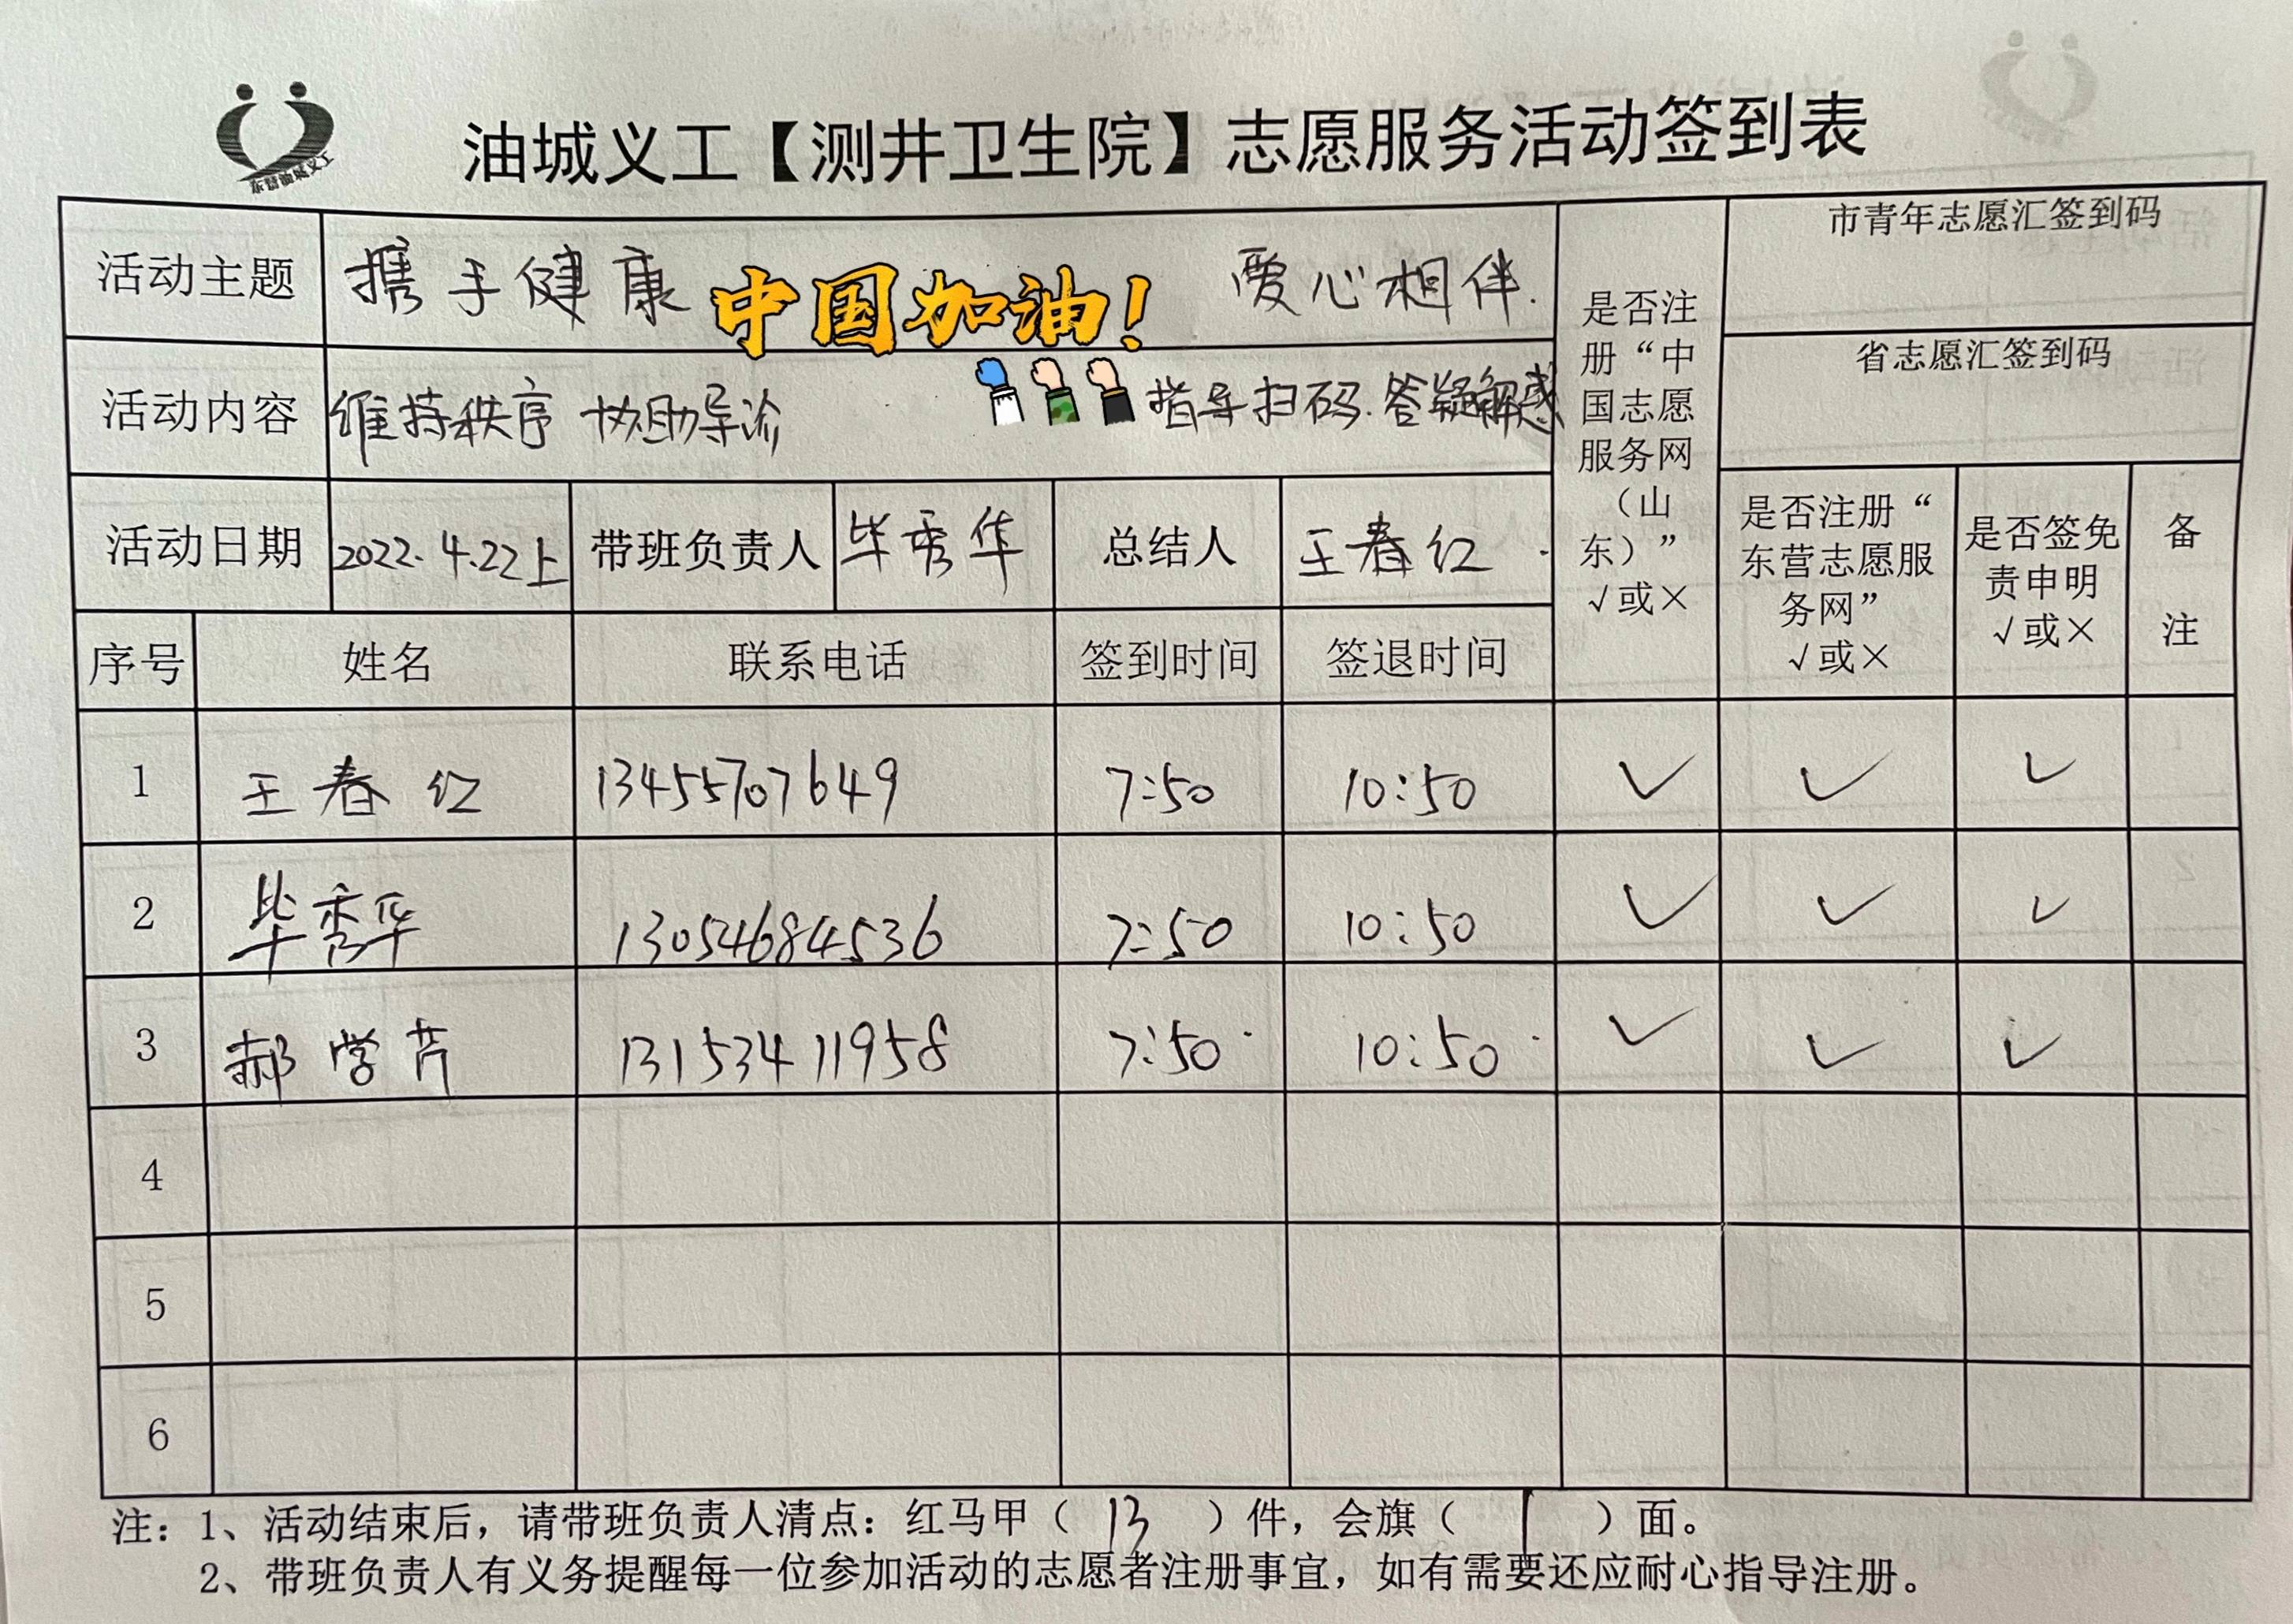 东营油城义工
油城义工【测井卫生院】志愿服务活动签到表
活动主题 携手健康 中国加油！ 爱心相伴.
是否注册“中国志愿服务网（山东）”√或×
市青年志愿汇签到码
省志愿汇签到码
活动内容 维持秩序 协助导诊 指导扫码.答疑解惑
活动日期 2022.4.22上 带班负责人 毕秀华 总结人 王春红
是否注册“东营志愿服务网”√或×
是否签免责申明√或×
备注
序号 姓名 联系电话 签到时间 签退时间
1 王春红 13455707649 7:50 10:50 ✓ ✓ ✓
2 毕秀华 13054684536 7:50 10:50 ✓ ✓ ✓
3 郝学芹 13153411958 7:50 10:50 ✓ ✓ ✓
4
5
6
注：1、活动结束后，请带班负责人清点：红马甲（ 13 ）件，会旗（ 1 ）面。
2、带班负责人有义务提醒每一位参加活动的志愿者注册事宜，如有需要还应耐心指导注册。